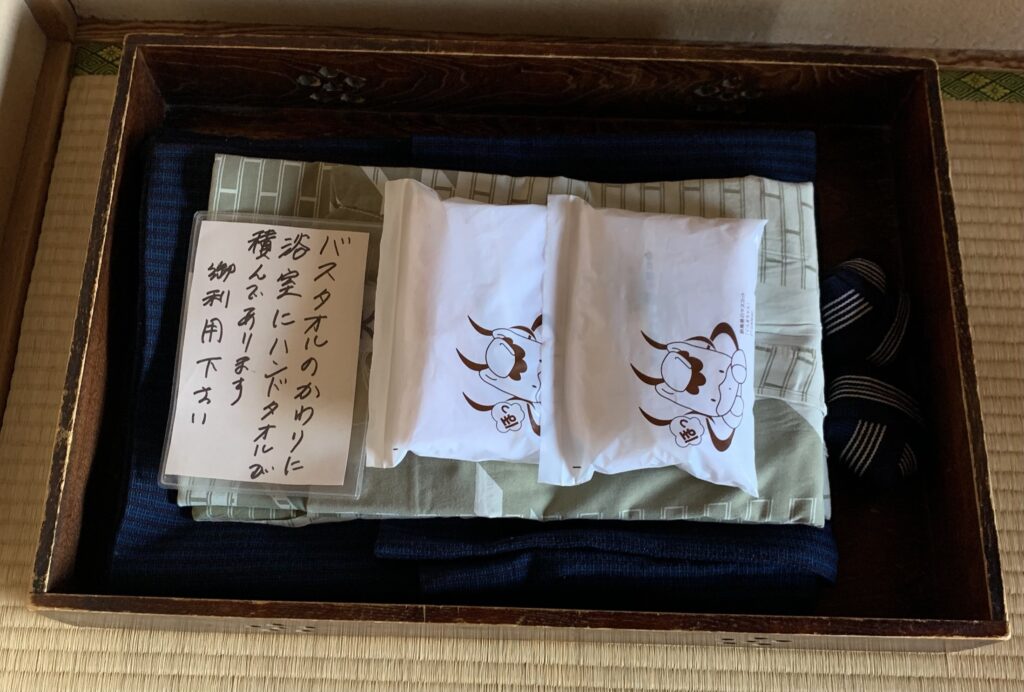 バスタオルのかわりに
浴室にハンドタオルが
積んであります
御利用下さい